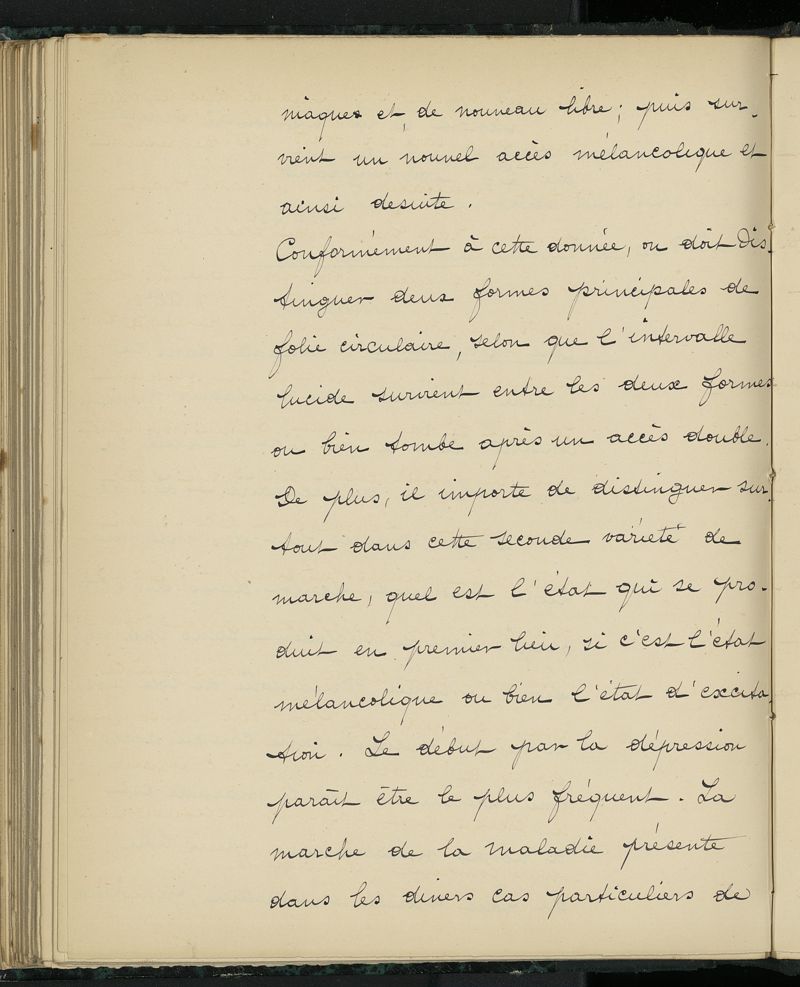 niaques et, de nouveau libre ; puis sur-
vient un nouvel accès mélancolique et
ainsi desuite.
Conformément à cette donnée, on doit dis-
tinguer deux formes principales de
folie circulaire, selon que l'intervalle
lucide survient entre les deux formes
ou bien tombe après un accès double.
De plus, il importe de distinguer sur-
tout dans cette seconde variété de
marche, quel est l'état qui se pro-
duit en premier lieu, si c'est l'état
mélancolique ou bien l'état d'excita-
tion. Le début par la dépression
paraît être le plus fréquent. La
marche de la maladie présente
dans les divers cas particuliers de